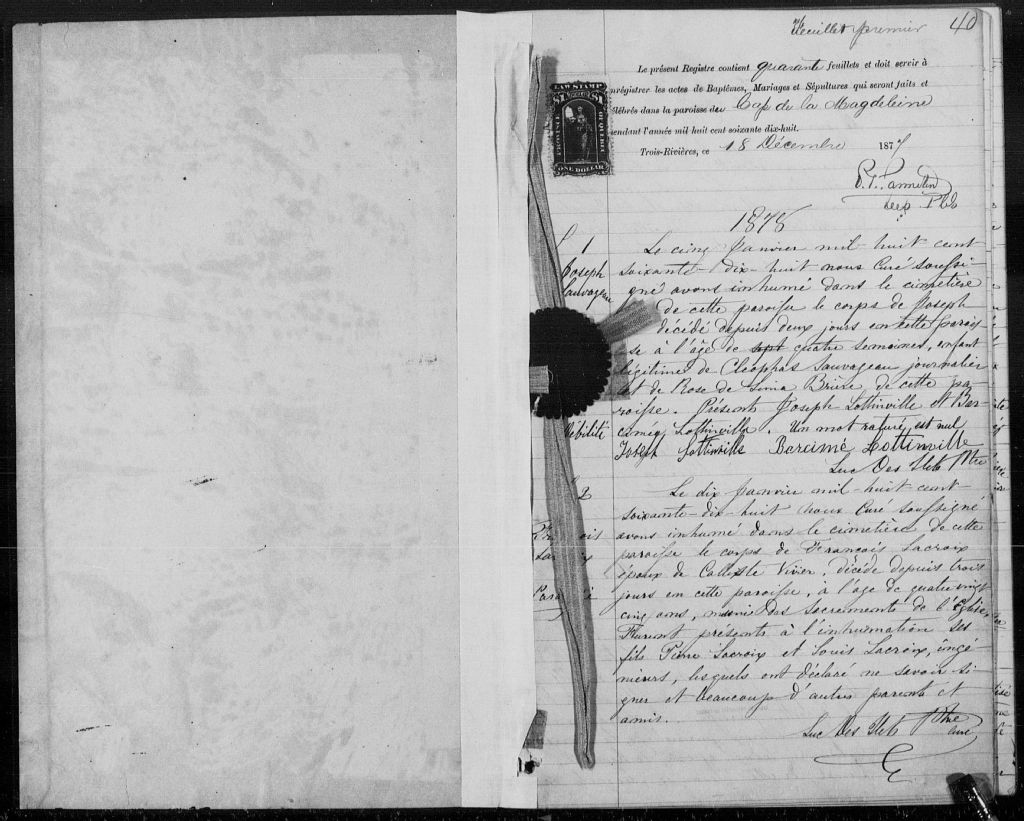 Feuillet premier 40
Le présent Registre contient quarante feuillets et doit servir à
enrégistrer les actes de Baptêmes, Mariages et Sépultures qui seront faits et
célébrés dans la paroisse du Cap de la Magdeleine
pendant l'année mil huit cent soixante dix-huit.
Trois-Rivières, ce 18 Décembre 1877
LAW STAMP
$1 DOLLAR $1
PROVINCE OF QUEBEC
ONE DOLLAR
1878
1
Joseph
Sauvageau
Débilité
Le cinq Janvier mil-huit-cent
soixante-dix-huit nous Curé soussi-
gné avons inhumé dans le cimetière
de cette paroisse le corps de Joseph
décédé depuis deux jours en cette parois-
se à l'âge de sept quatre semaines, enfant
légitime de Cléophas Sauvageau journalier
et de Rose de Lima Brière de cette pa-
roisse. Présent Joseph Lottinville et Bar-
cimé Lottinville. Un mot raturé est nul
Joseph Lottinville Barcimé Lottinville
Luc Des Ilets Ptre
2
Le dix Janvier mil-huit-cent
soixante-dix-huit Nous Curé soussigné
avons inhumé dans le cimetière de cette
paroisse le corps de François Lacroix
époux de Calliste Vivier, décédé depuis trois
jours en cette paroisse, à l'âge de quatrevingt
cinq ans, muni des sacrements de l'Eglise,
Furent présents à l'inhumation ses
fils Pierre Lacroix et Louis Lacroix, ingé-
nieurs, lesquels ont déclaré ne savoir si-
gner et beaucoup d'autres parents et
amis.
Luc Des Ilets Ptre
curé